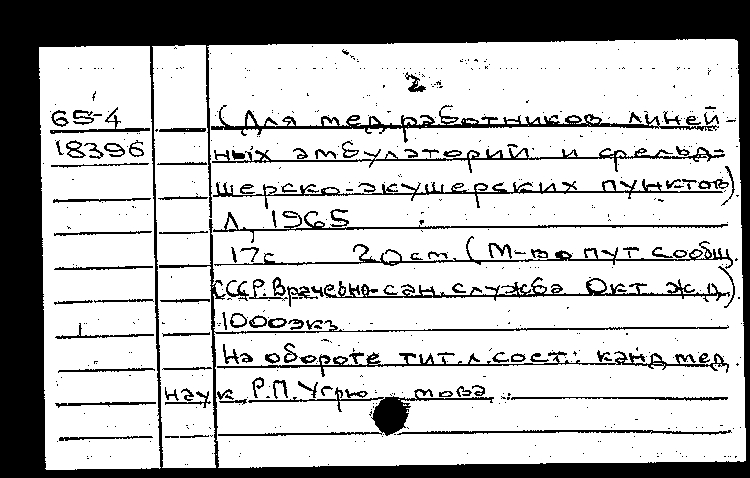 2
65-4 (Для мед.работников линей-
18396 ных амбулаторий и фельд-
шерско-акушерских пунктов).
Л., 1965
17с 20см. (М-во пут. сообщ.
СССР. Врачебно-сан. служба Окт. ж.д.)
1000экз.
На обороте тит.л. сост.: канд.мед.
наук Р.П.